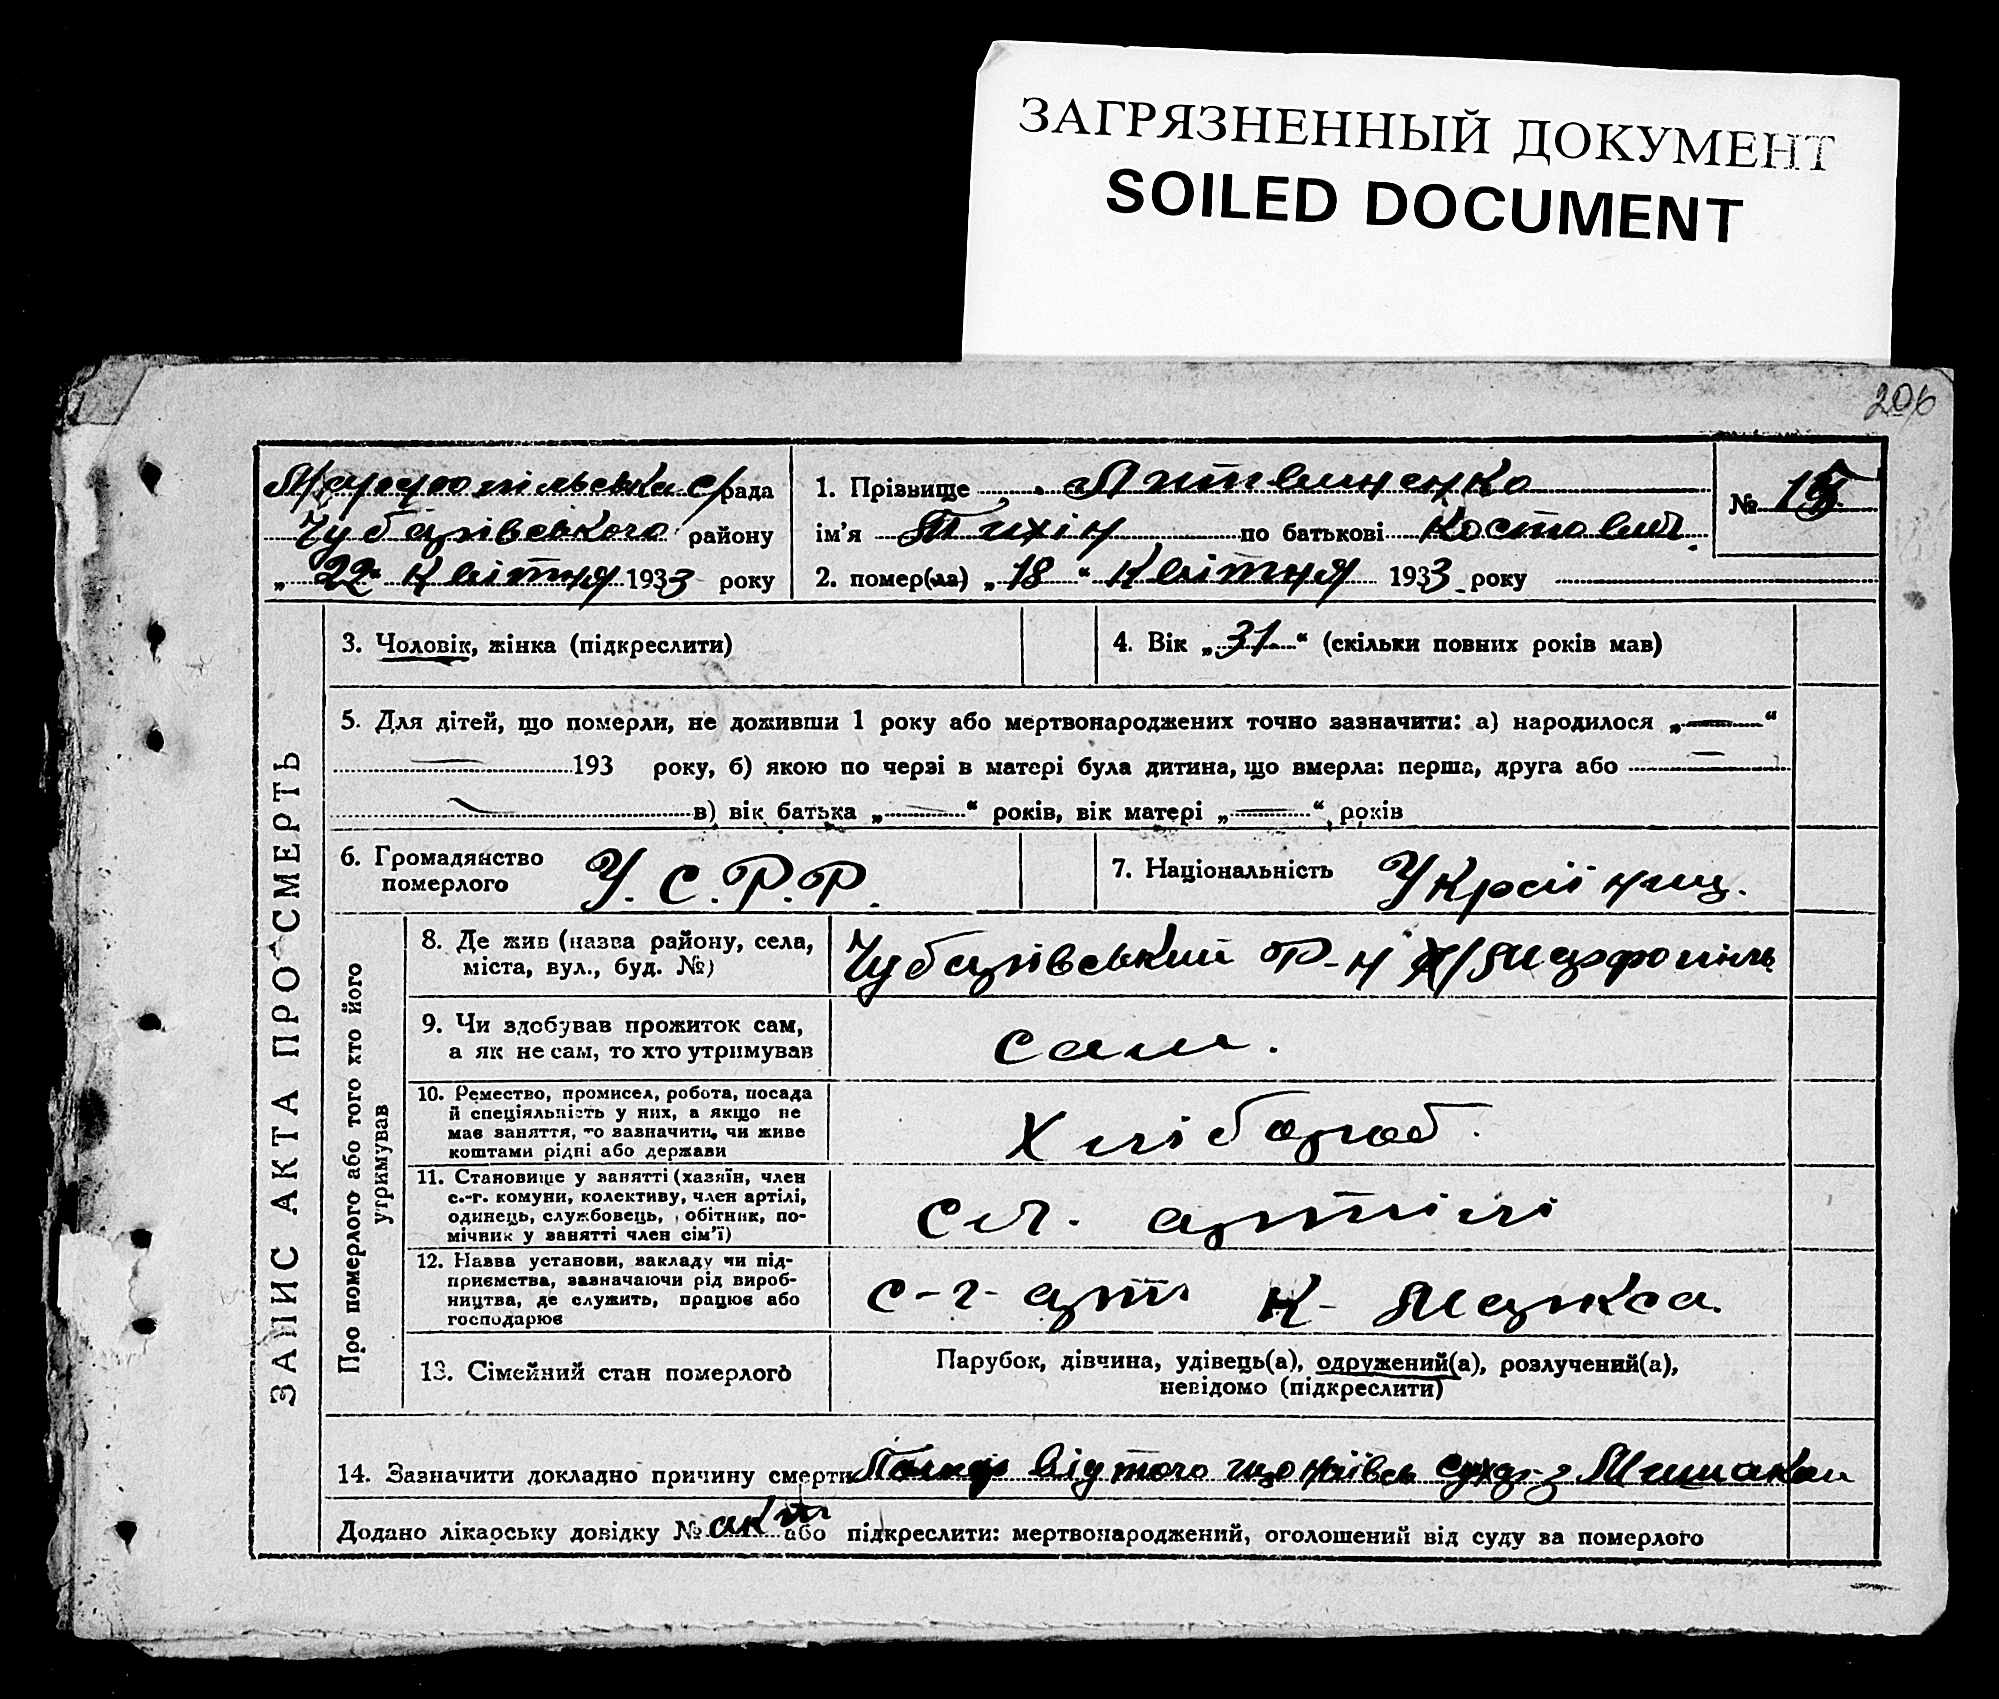 ЗАГРЯЗНЕННЫЙ ДОКУМЕНТ
SOILED DOCUMENT
206
Марфопільська с/рада
Чубарівського району
„22“ Квітня 1933 року
1. Прізвище Литвиненко
ім’я Тихін по батькові Костович.
2. помер(ла) „18“ Квітня 1933 року
№ 15
ЗАПИС АКТА ПРО СМЕРТЬ
3. Чоловік, жінка (підкреслити)
4. Вік „31“ (скільки повних років мав)
5. Для дітей, що померли, не доживши 1 року або мертвонароджених точно зазначити: а) народилося „—“
— 193 року, б) якою по черзі в матері була дитина, що вмерла: перша, друга або —
— в) вік батька „—“ років, вік матері „—“ років
6. Громадянство
померлого
У.С.Р.Р.
7. Національність Україниц.
Про померлого або того хто його
утримував
8. Де жив (назва району, села,
міста, вул., буд. №)
Чубарівський р-н Х/Марфопіль
9. Чи здобував прожиток сам,
а як не сам, то хто утримував
сам.
10. Ремество, промисел, робота, посада
й спеціяльність у них, а якщо не
має заняття, то зазначити, чи живе
коштами рідні або держави
Хлібороб.
11. Становище у занятті (хазяїн, член
с.-г. комуни, колективу, член артілі,
одинець, службовець, обітник, по-
мічник у занятті член сім’ї)
член. артілі
12. Назва установи, закладу чи під-
приємства, зазначаючи рід вироб-
ництва, де служить, працює або
господарює
с-г-арт К- Маркса.
13. Сімейний стан померлого
Парубок, дівчина, удівець(а), одружений(а), розлучений(а),
невідомо (підкреслити)
14. Зазначити докладно причину смерти від того що наївсь
Додано лікарську довідку № акт або підкреслити: мертвонароджений, оголошений від суду за померлого